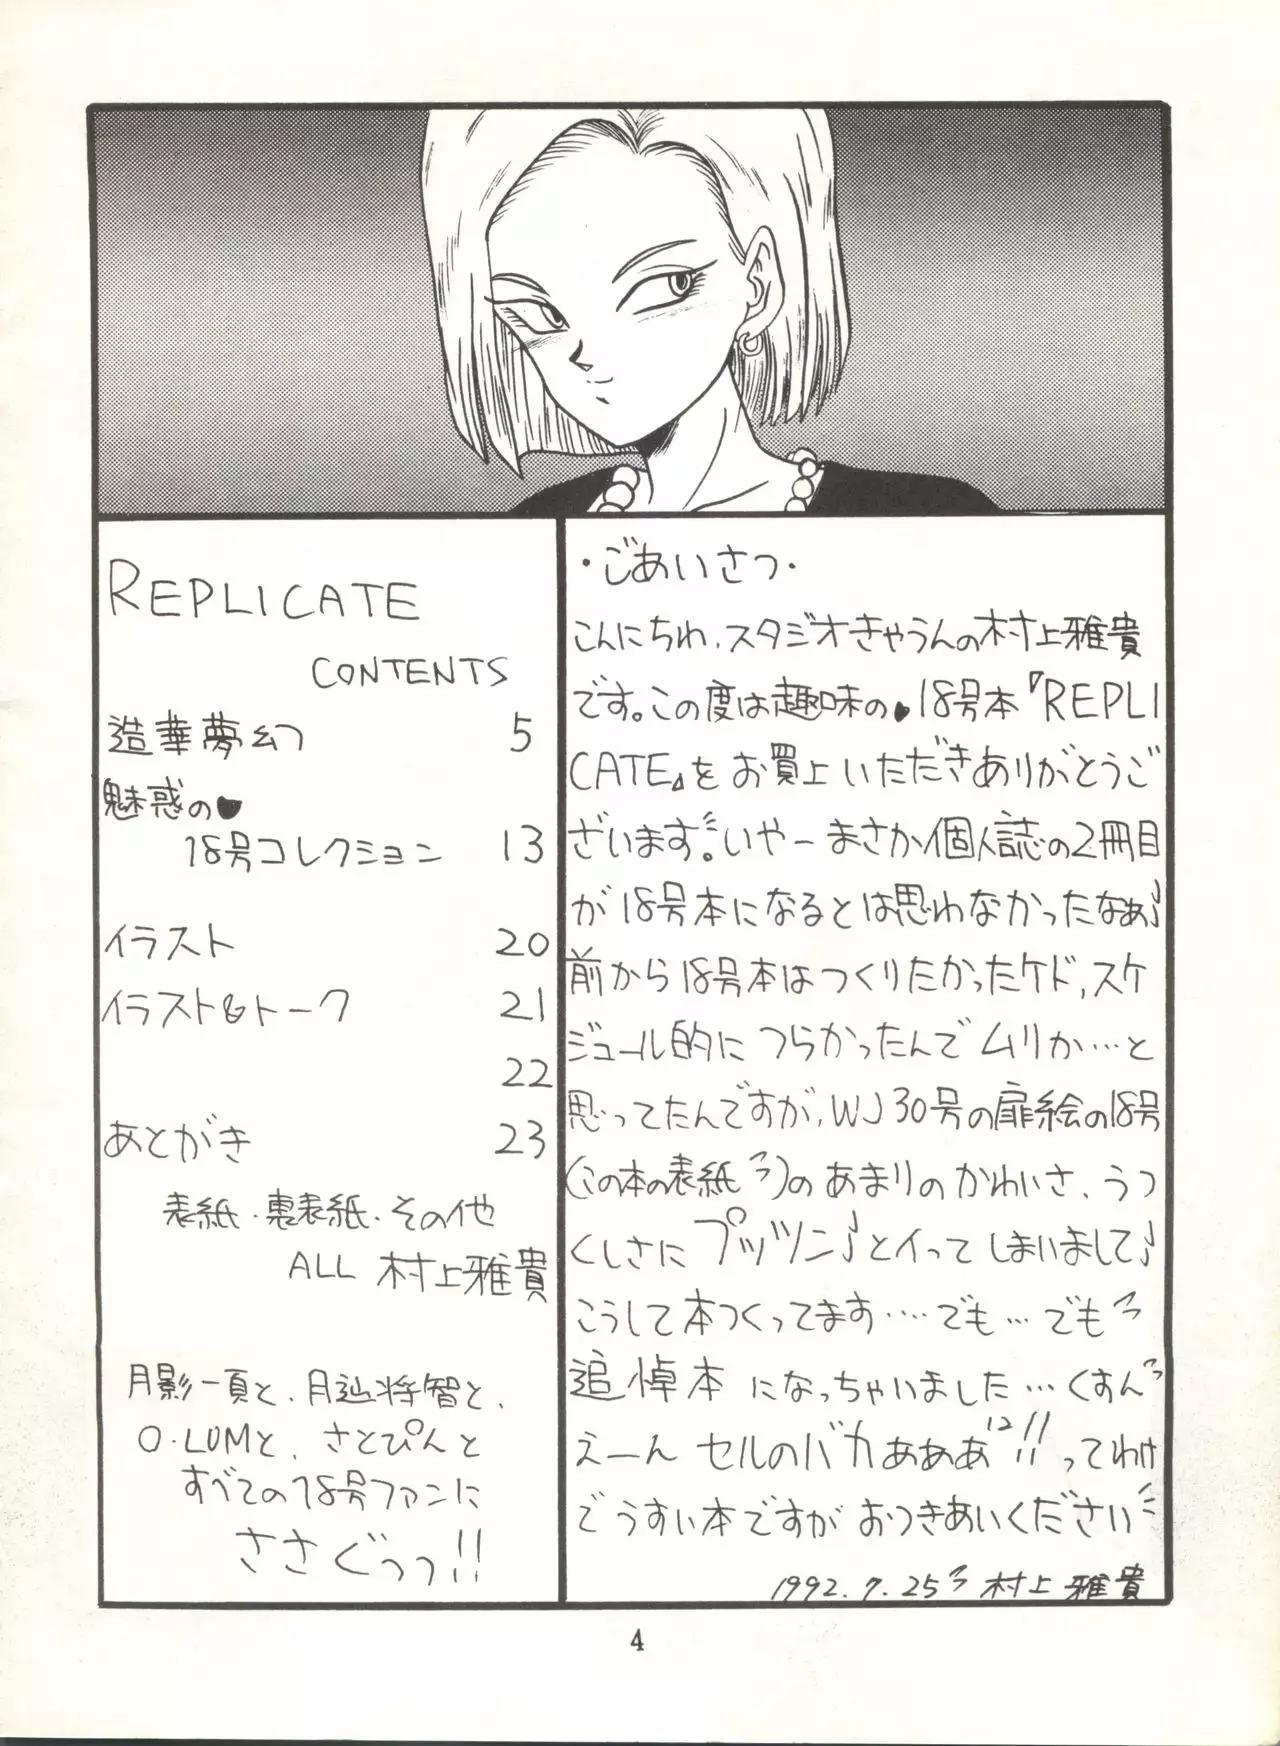 REPLICATE
CONTENTS
造華夢幻 5
魅惑の♥
18号コレクション 13
イラスト 20
イラスト&トーク 21
22
あとがき 23
表紙・裏表紙・その他
ALL 村上雅貴
月影一頁と、月辿将智と、
O・LUMと、さとぴんと
すべての18号ファンに
ささぐっっ!!
・ごあいさつ・
こんにちわ、スタジオきゃうんの村上雅貴
です。この度は趣味の♥18号本『REPLI
CATE』をお買上いただきありがとうご
ざいます。いやーまさか個人誌の2冊目
が18号本になるとは思わなかったなぁ♪
前から18号本はつくりたかったケド,スケ
ジュール的につらかったんでムリか…と
思ってたんですが,WJ30号の扉絵の18号
(この本の表紙っ)のあまりのかわいさ、うつ
くしさにプッツン♪とイってしまいまして♪
こうして本つくってます‥‥でも…でもっ
追悼本になっちゃいました…くすんっ
えーんセルのバカぁぁあ!!ってわけ
でうすい本ですがおつきあいください
1992.7.25 村上雅貴
4